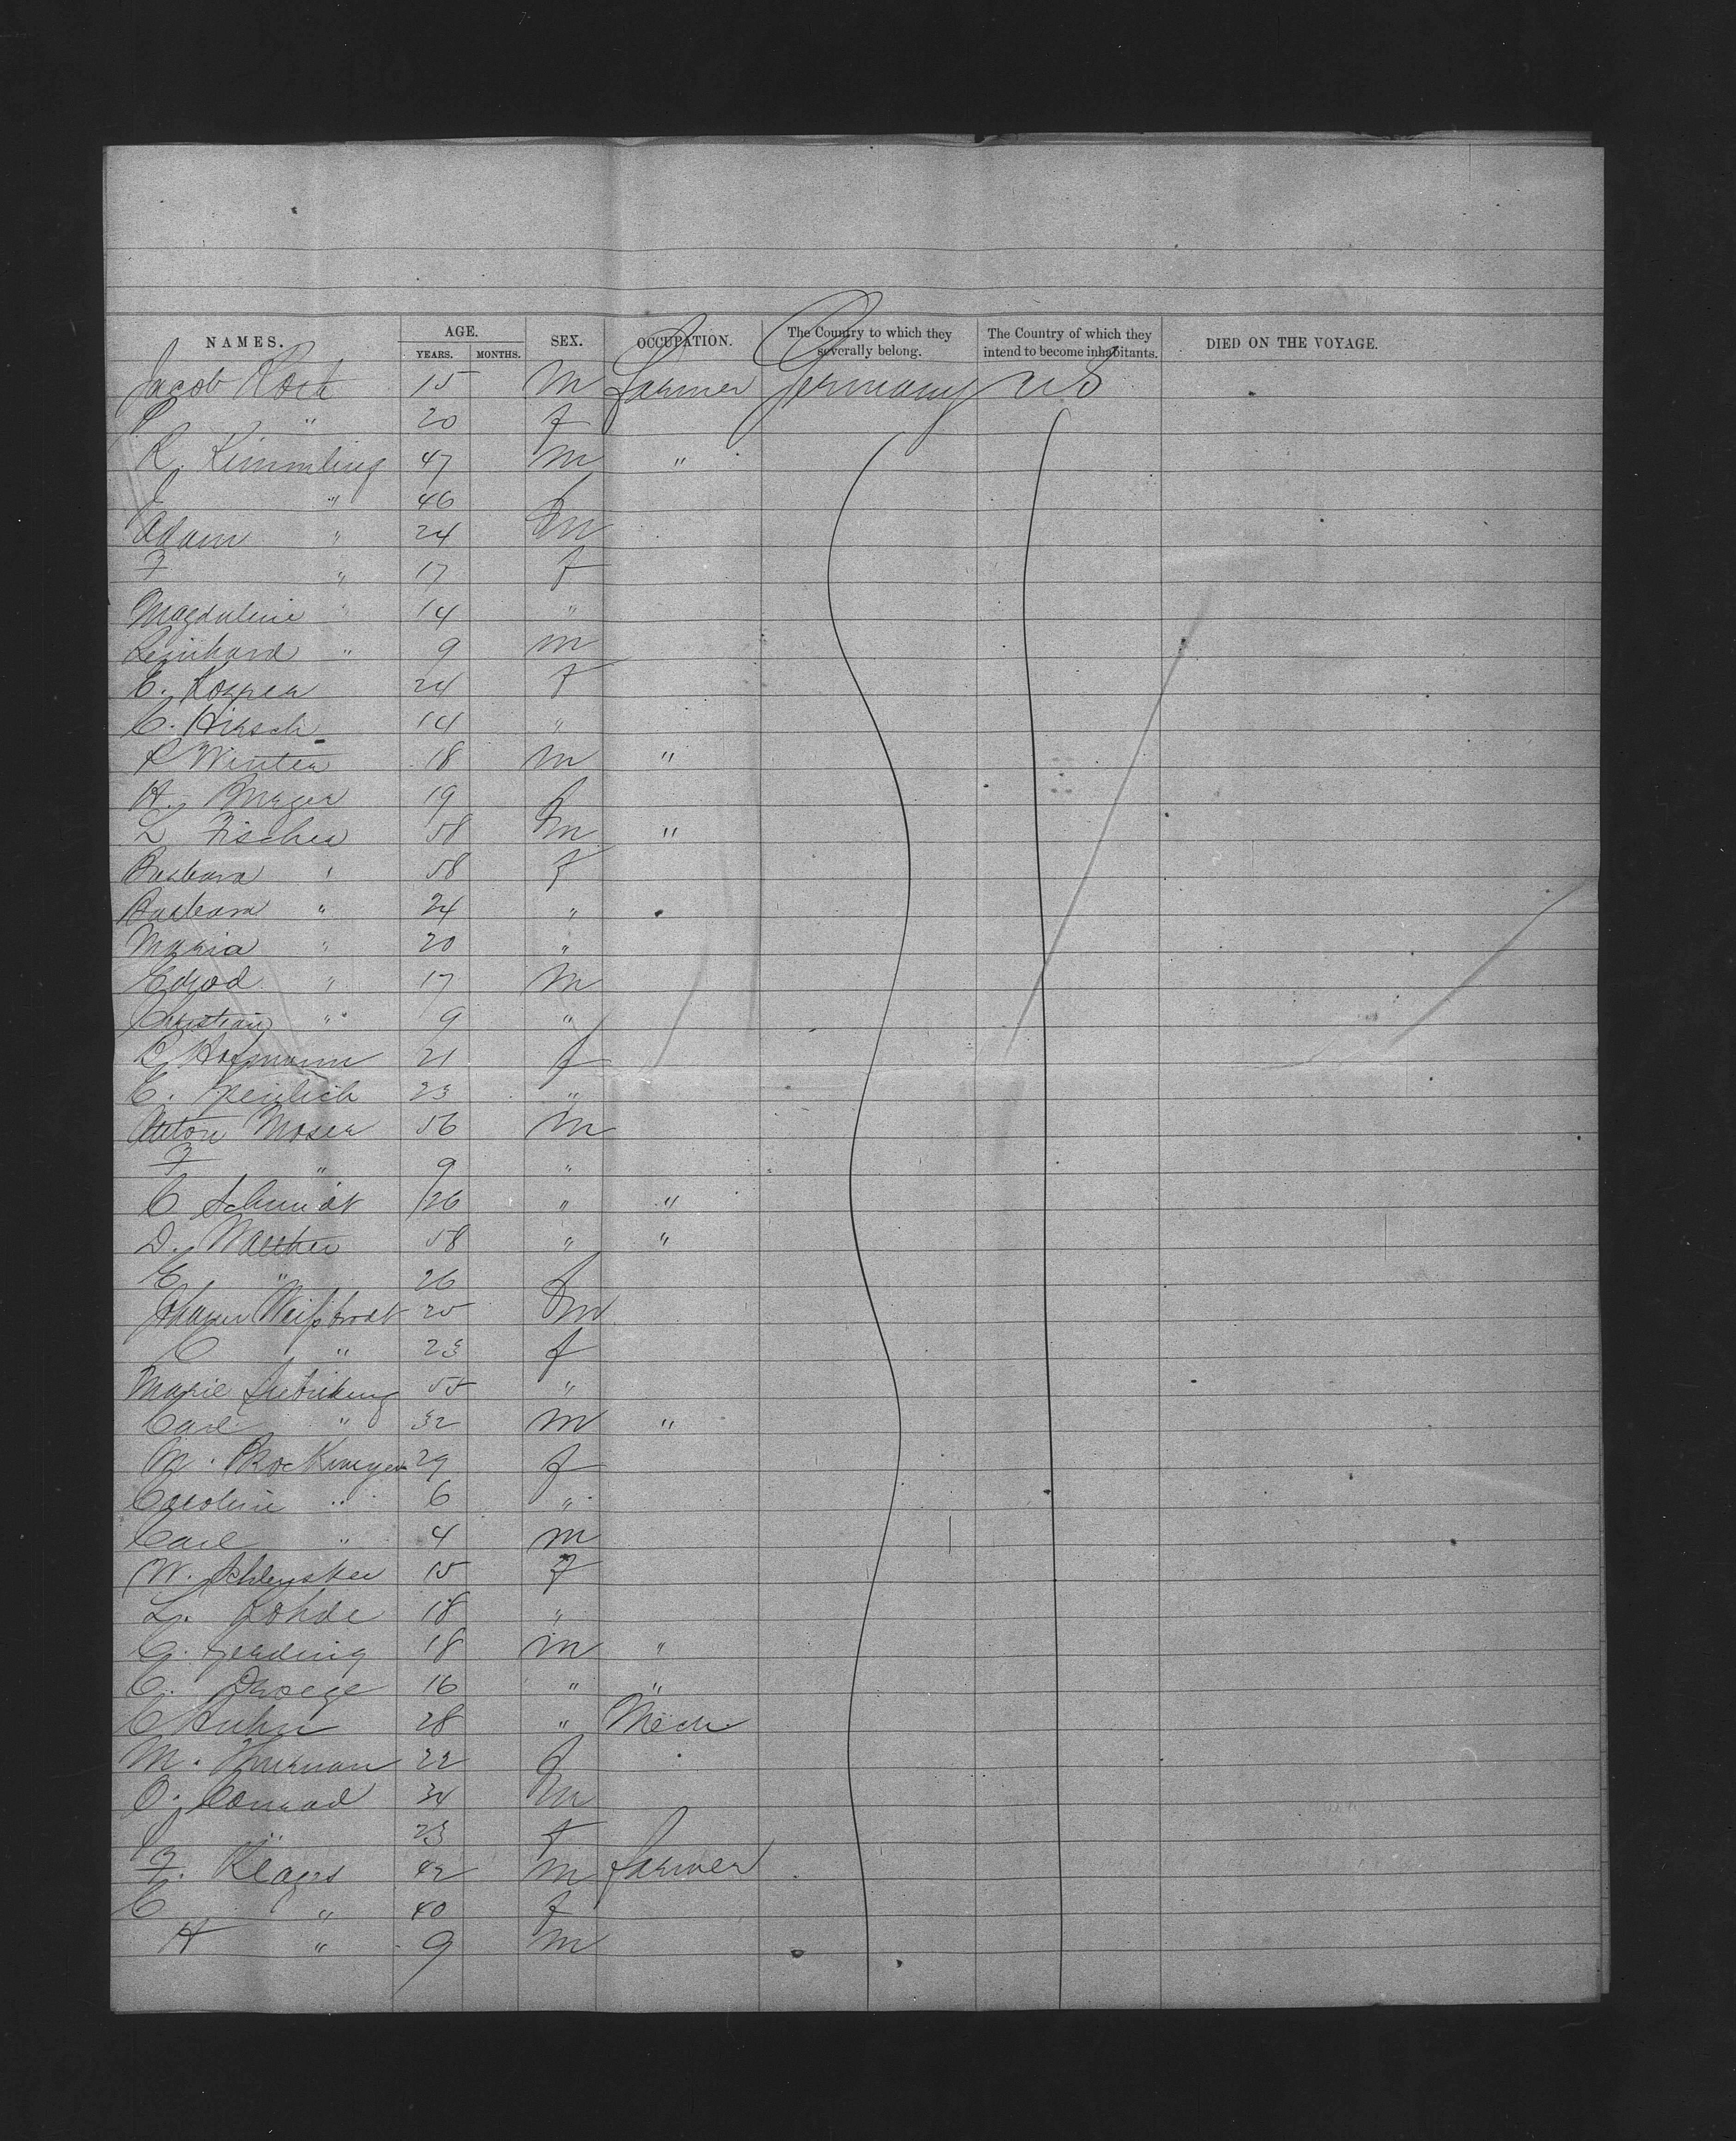 NAMES. AGE. SEX. OCCUPATION. The Country to which they severally belong. The Country of which they intend to become inhabitants. DIED ON THE VOYAGE.
YEARS. MONTHS.
Jacob 15 m farmer Germany US
" 20 f
R. Kimmling 47 m "
" 46 f
Adam " 24 m
F " 17 f
Magdaleine " 14 "
Leinhard " 9 m
C. 24 f
C. Hirsch 14 "
Winter 18 m "
H. Meyer 19 f
L Fischer 58 m "
Barbara " 58 f
Barbara " 24 "
Maria " 20 "
" 17 m
Christian " 9 "
Hofmann 21 f
C. 23 "
Anton Moser 56 m
F " 9 "
C Schmidt 26 " "
D. Walther 58 " "
E " 26 f
Weißbrodt 25 m
C " 23 f
Marie 55 "
Carl " 32 m "
M. 29 f
Caroline " 6 "
Carl " 4 m
W. 15 f
L. Rohde 18 "
G. Gerding 18 m "
C. Droege 16 " "
C Huhn 28 " Mech.
M. 22 f
O. Conrad 34 m
" 23 f
F. Klages 42 m farmer
C " 40 f
H " 9 m